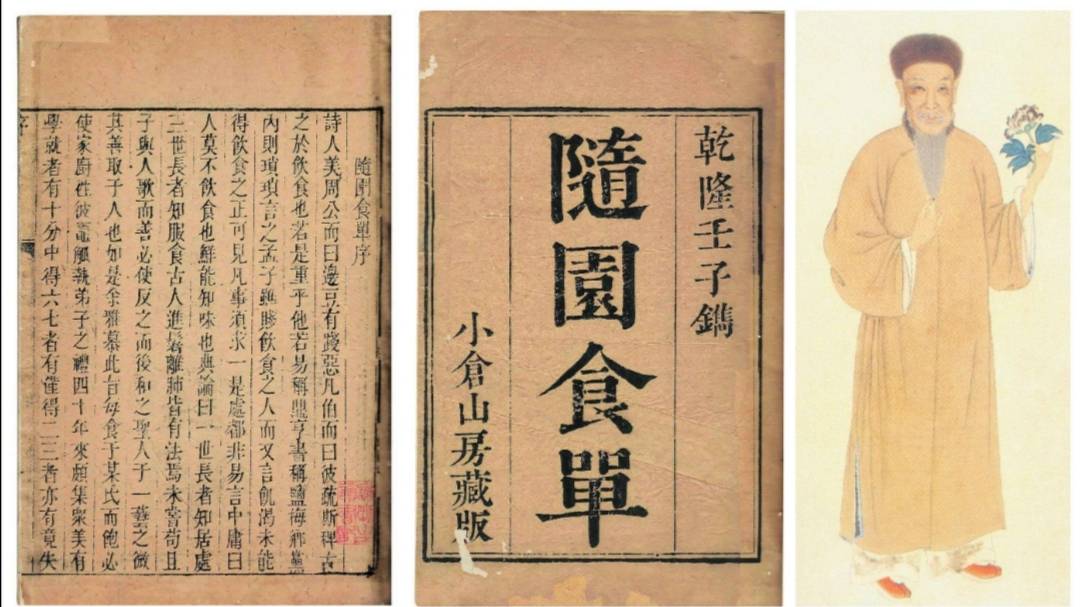 隨園食單序
詩人美周公而曰籩豆有踐惡凡伯而曰彼疏斯稗古
之於飲食也若是重乎他若易稱鼎亨書稱鹽梅鄉黨
內則瑣瑣言之孟子雖賤飲食之人而又言飢渴未能
得飲食之正可見凡事須求一是處都非易言中庸曰
人莫不飲食也鮮能知味也典論曰一世長者知居處
三世長者知服食古人進鬐離肺皆有法焉未嘗苟且
子與人歌而善必使反之而後和之聖人于一藝之微
其善取于人也如是余雅慕此旨每食于某氏而飽必
使家廚往彼竈觚執弟子之禮四十年來頗集衆美有
學就者有十分中得六七者有僅得二三者亦有竟失
序
乾隆壬子鐫
隨園食單
小倉山房藏版